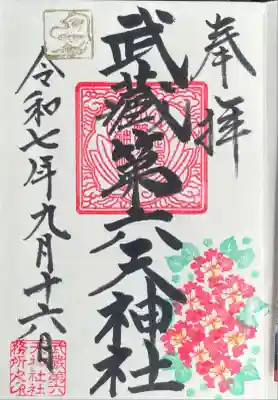 奉拝
武蔵第六天神社
令和七年九月十六日
武蔵第六
天神社社
務所之印